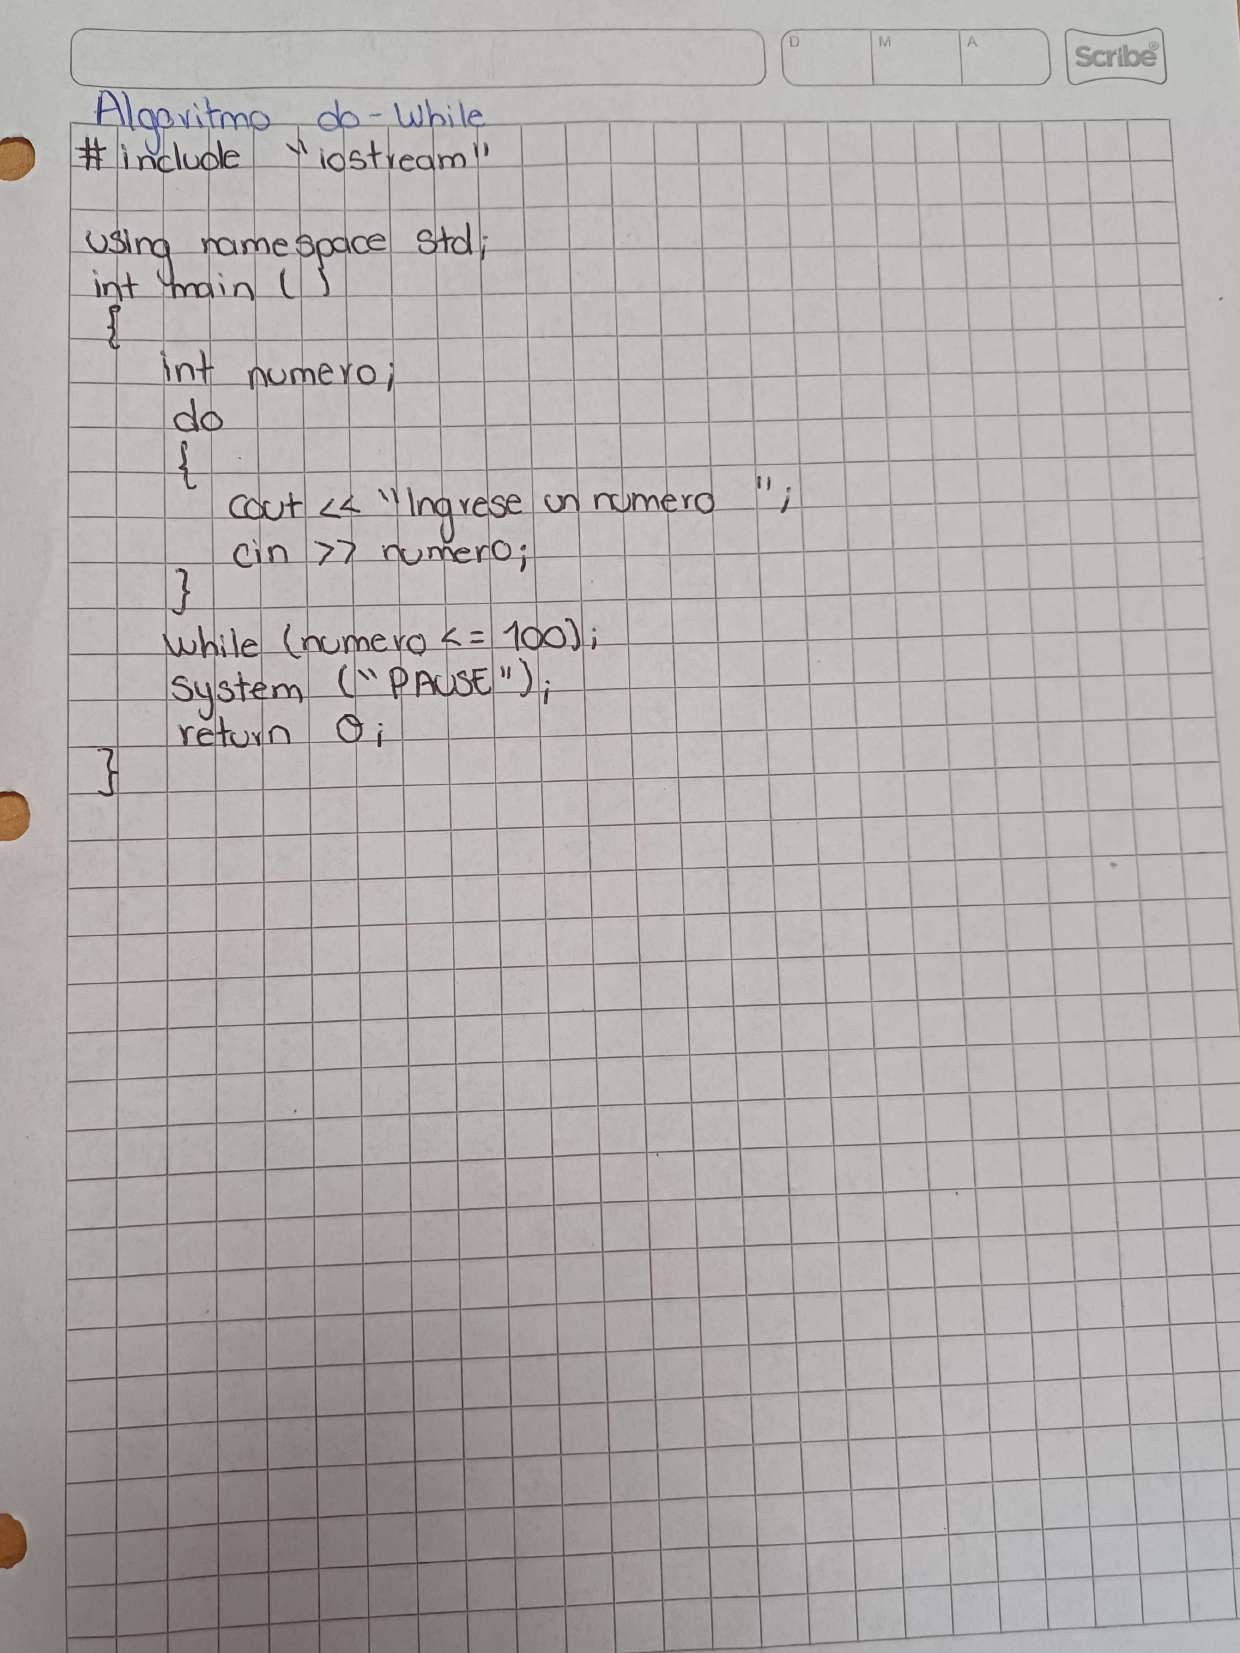 D M A Scribe®
Algoritmo do-while
#include "iostream"
using namespace std;
int main ()
{
int numero;
do
{
cout << "Ingrese un numero ";
cin >> numero;
}
while (numero <= 100);
system ("PAUSE");
return 0;
}